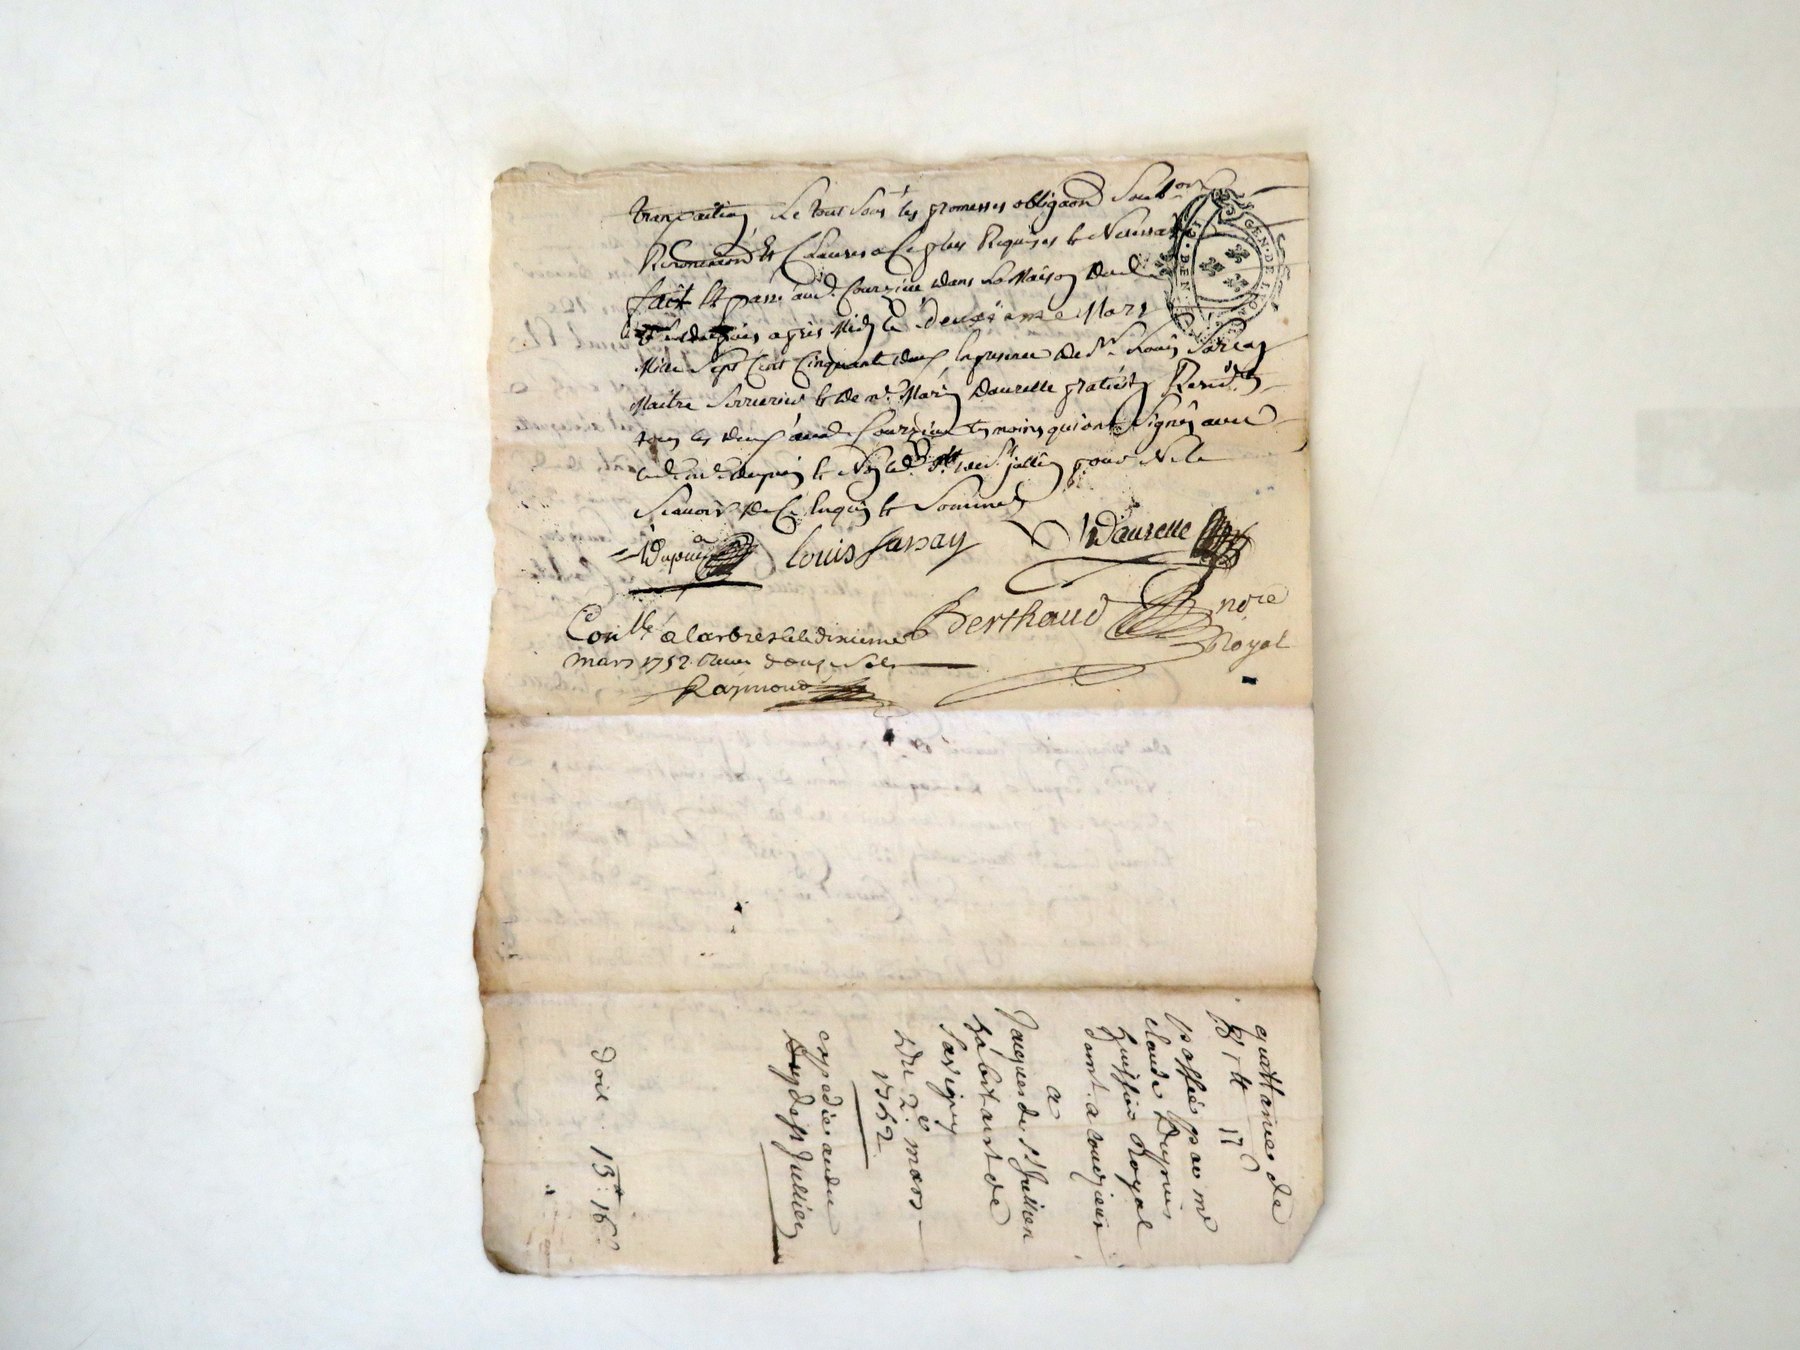 transpaction Le tout sous les promesses obligaons
Renonciaons Et Clauses a Ce plus Requises Et Necessaires
fait Et passé aud. Courzieu dans La Maison dud.
après Midy Le deuxieme Mars
Mille Sept Cent Cinquante deux En presence De Sr. Louis
Maitre Serrurier Et De Me. Marin Daurelle praticien Resid.
tous les deux aud. Courzieu temoins qui ont Signés avec
Led. Me. dupuis Et Non Led. St. jullien pour Ne le
Scavoir De Ce Enquis Et Sommé
Dupuis Louis Sansay Daurelle
Berthaud nore
Royal
Conllé a Larbresle le dixieme
mars 1752 Receu douze Sols
Raymond
GEN. DE
quittance de
13 tt 17
passée par me
claude Dupuis
huissier Royal
a courzieu
a
Jacques de St Jullien
habitant de
Savigny
Du 2e mars
1752
expediée audit
de St Jullien
doit 13tt 16s